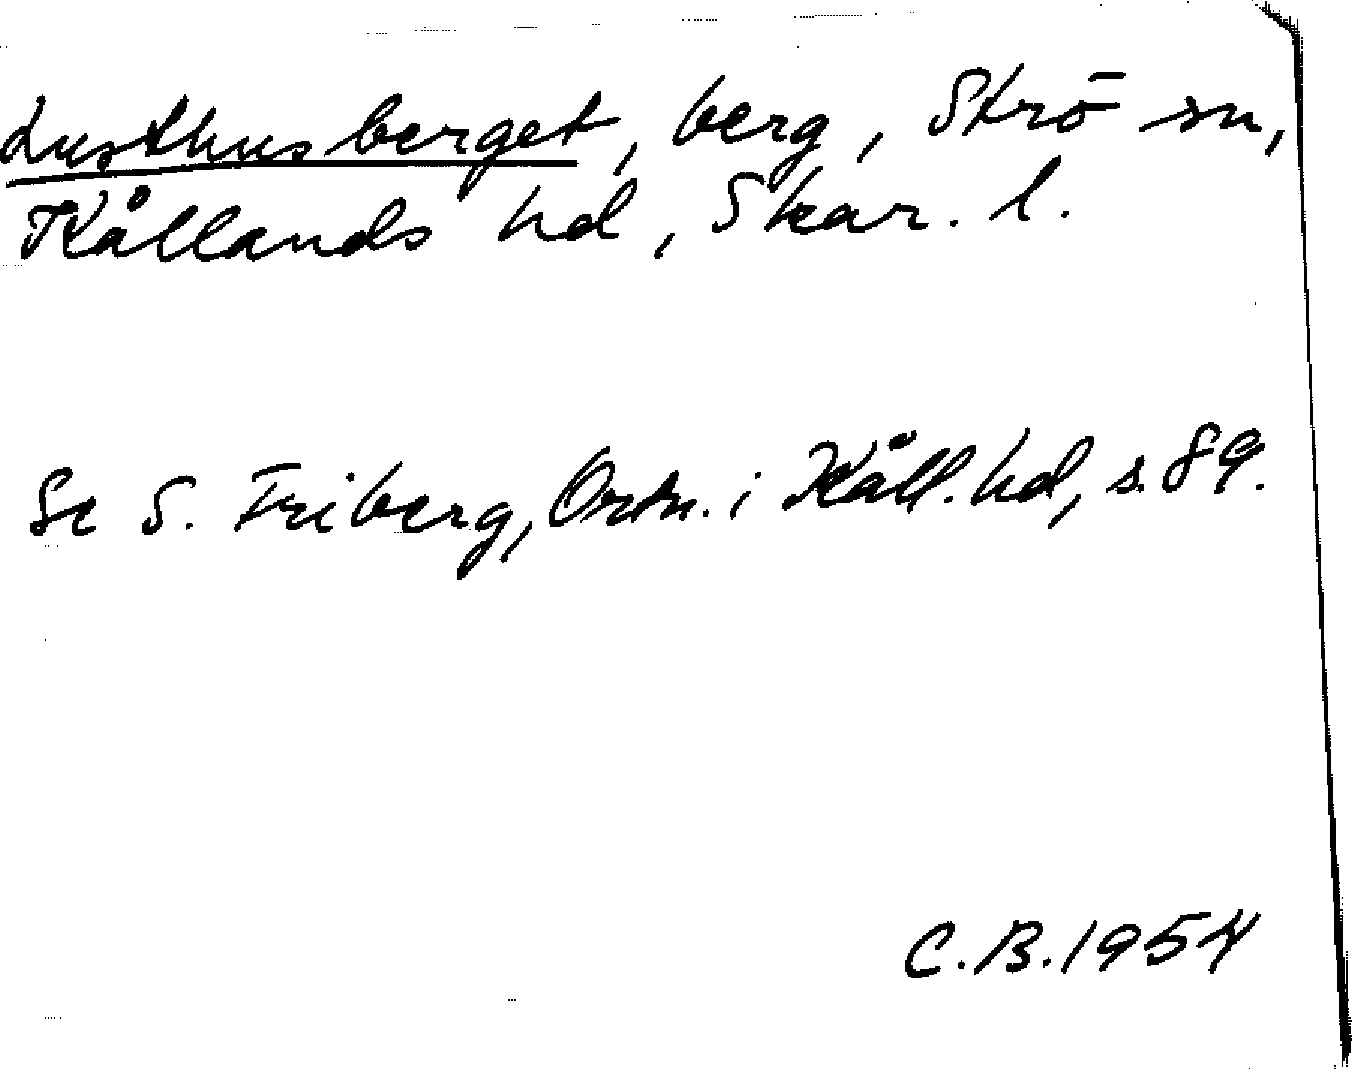 Lusthusberget, berg, Strö sn,
Kållands hd, Skar. l.
Se S. Friberg, Ortn. i Kåll. hd, s. 89.
C.B. 1954